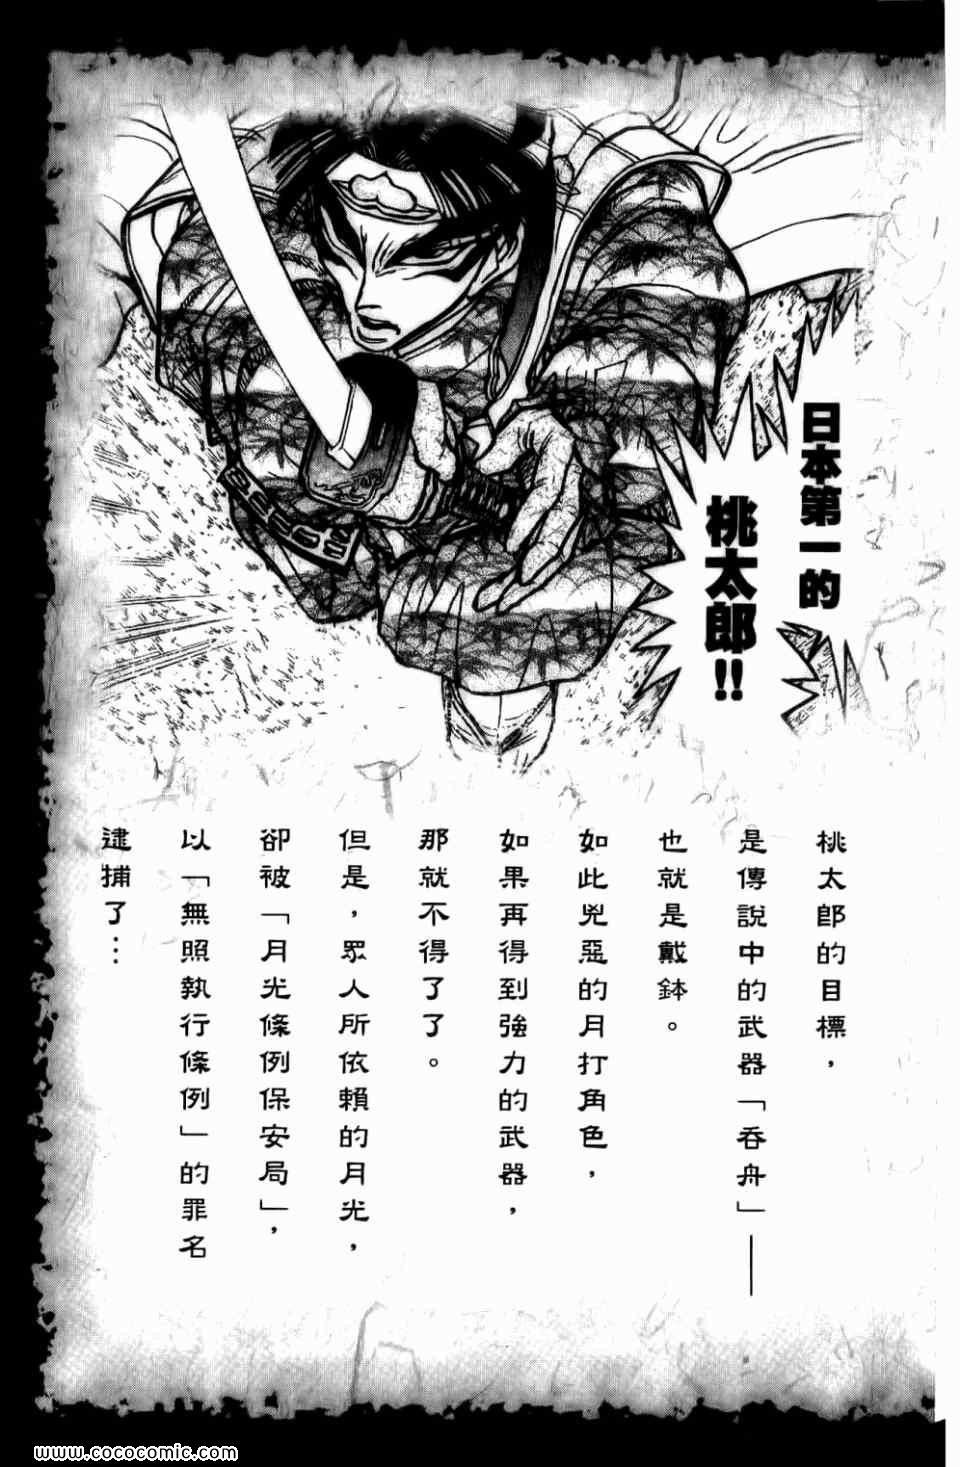 日本第一的
桃太郎!!
桃太郎的目標，
是傳說中的武器「吞舟」──
也就是戴鉢。
如此兇惡的月打角色，
如果再得到強力的武器，
那就不得了了。
但是，眾人所依賴的月光，
卻被「月光條例保安局」，
以「無照執行條例」的罪名
逮捕了…
www.cococomic.com
www.cococomic.com